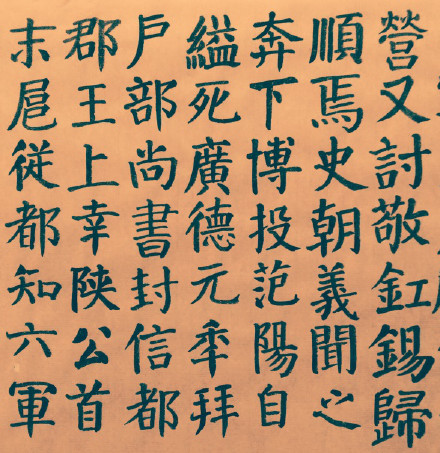 營又討敬釭錫歸
順焉史朝義聞之
奔下博投范陽自
縊死廣德元秊拜
戶部尚書封信都
郡王上幸陝公首
末扈従都知六軍